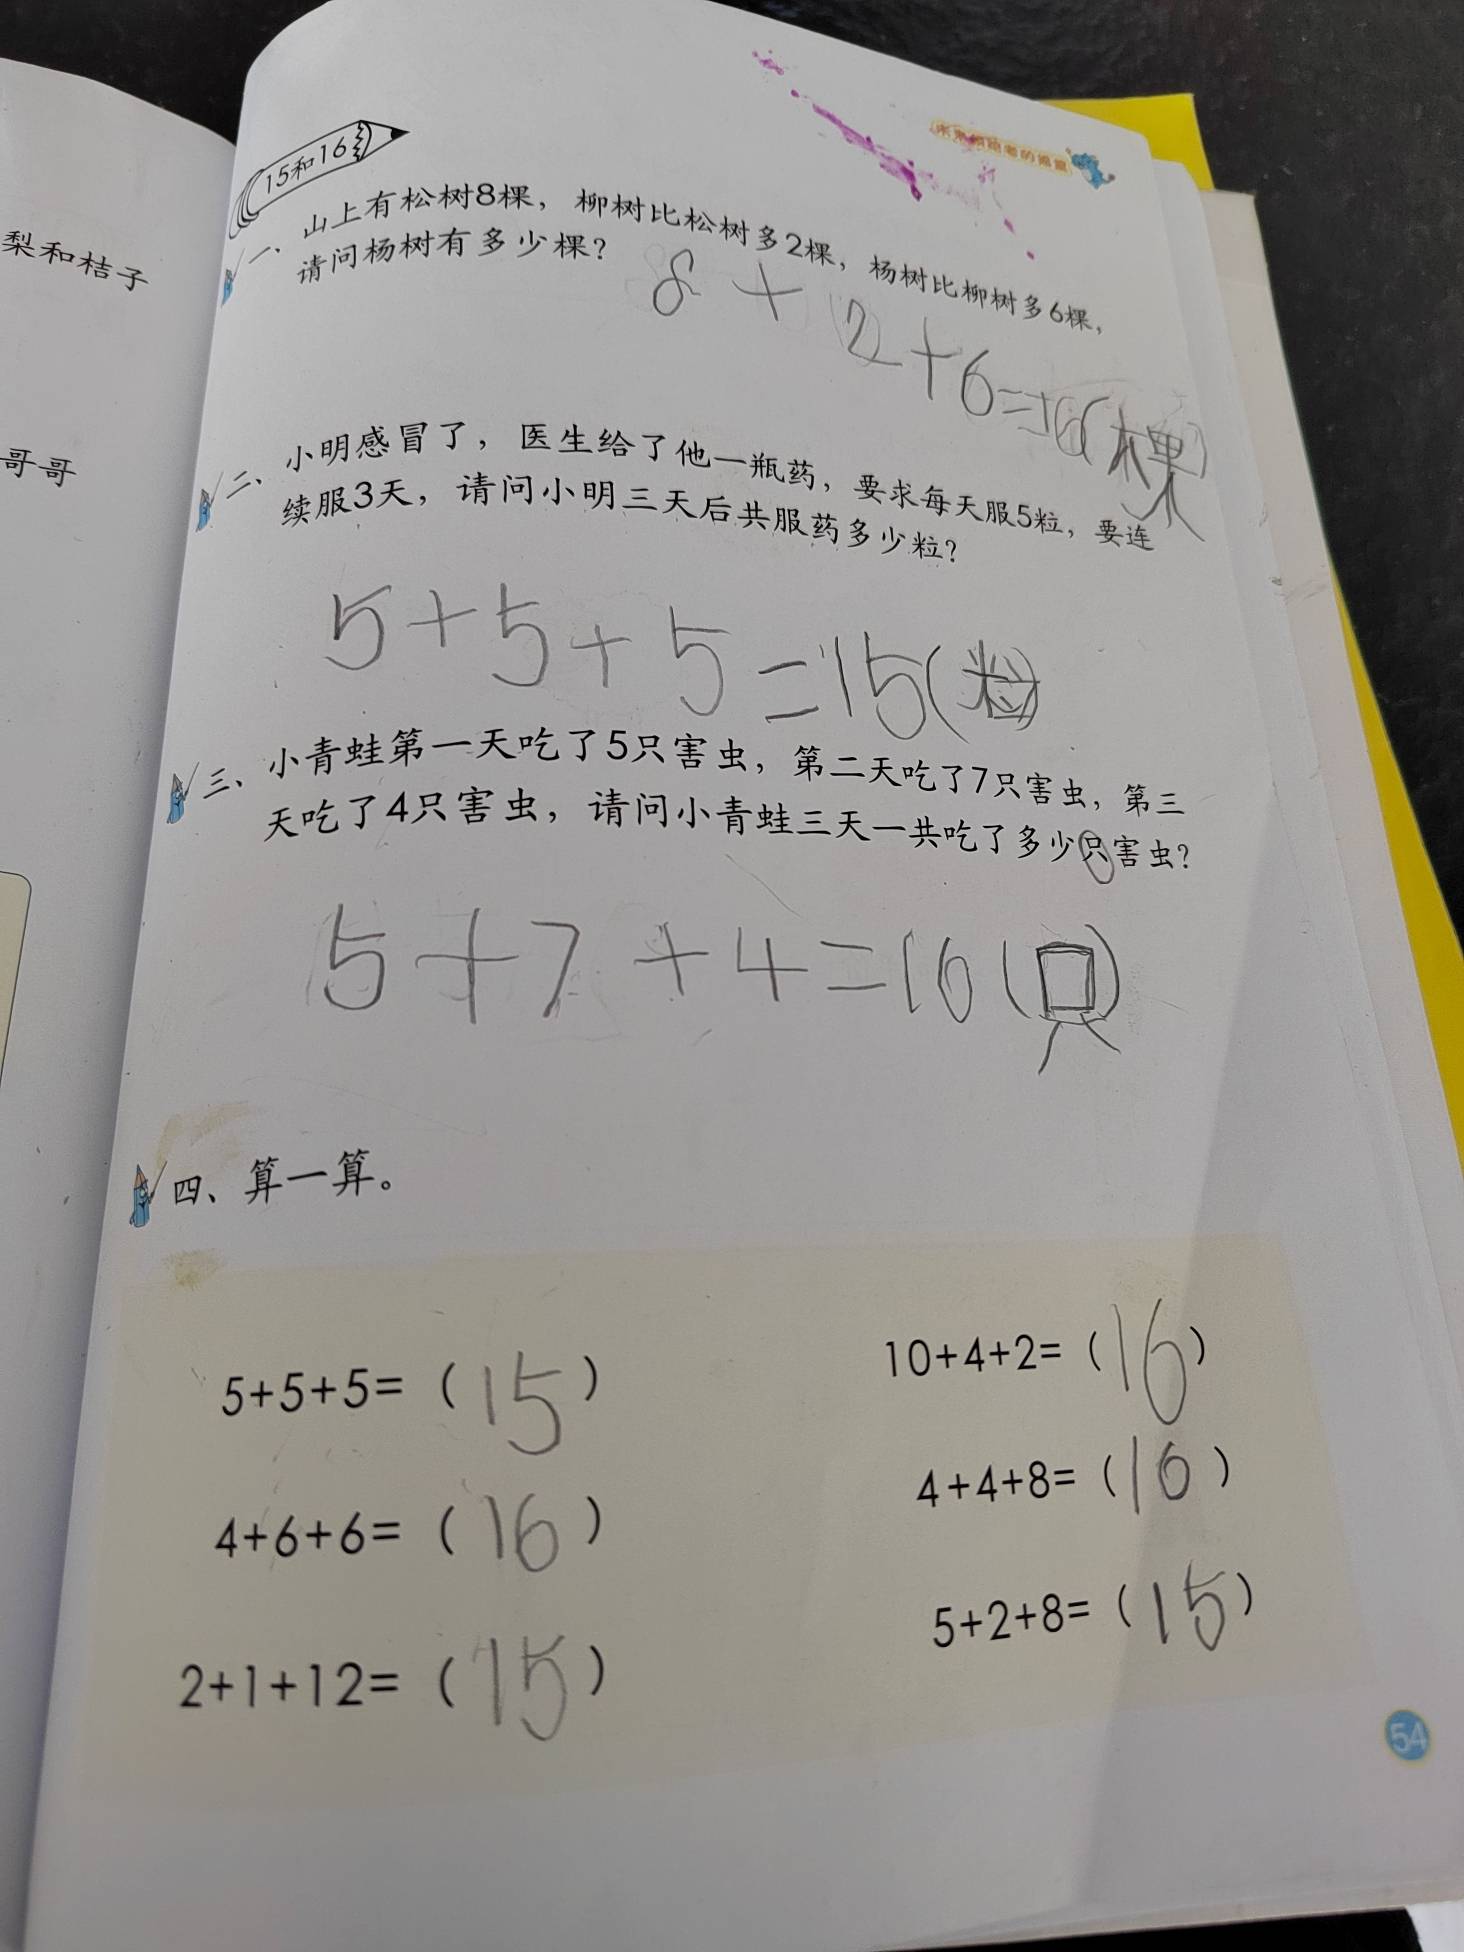 梨和桔子
哥哥
15和16
一、山上有松树8棵，柳树比松树多2棵，杨树比柳树多6棵，
请问杨树有多少棵？
8+2+6=16(棵)
二、小明感冒了，医生给了他一瓶药，要求每天服5粒，要连
续服3天，请问小明三天后共服药多少粒？
5+5+5=15(粒)
三、小青蛙第一天吃了5只害虫，第二天吃了7只害虫，第三
天吃了4只害虫，请问小青蛙三天一共吃了多少只害虫？
5+7+4=16(只)
四、算一算。
5+5+5=（15）
10+4+2=（16）
4+6+6=（16）
4+4+8=（16）
2+1+12=（15）
5+2+8=（15）
54